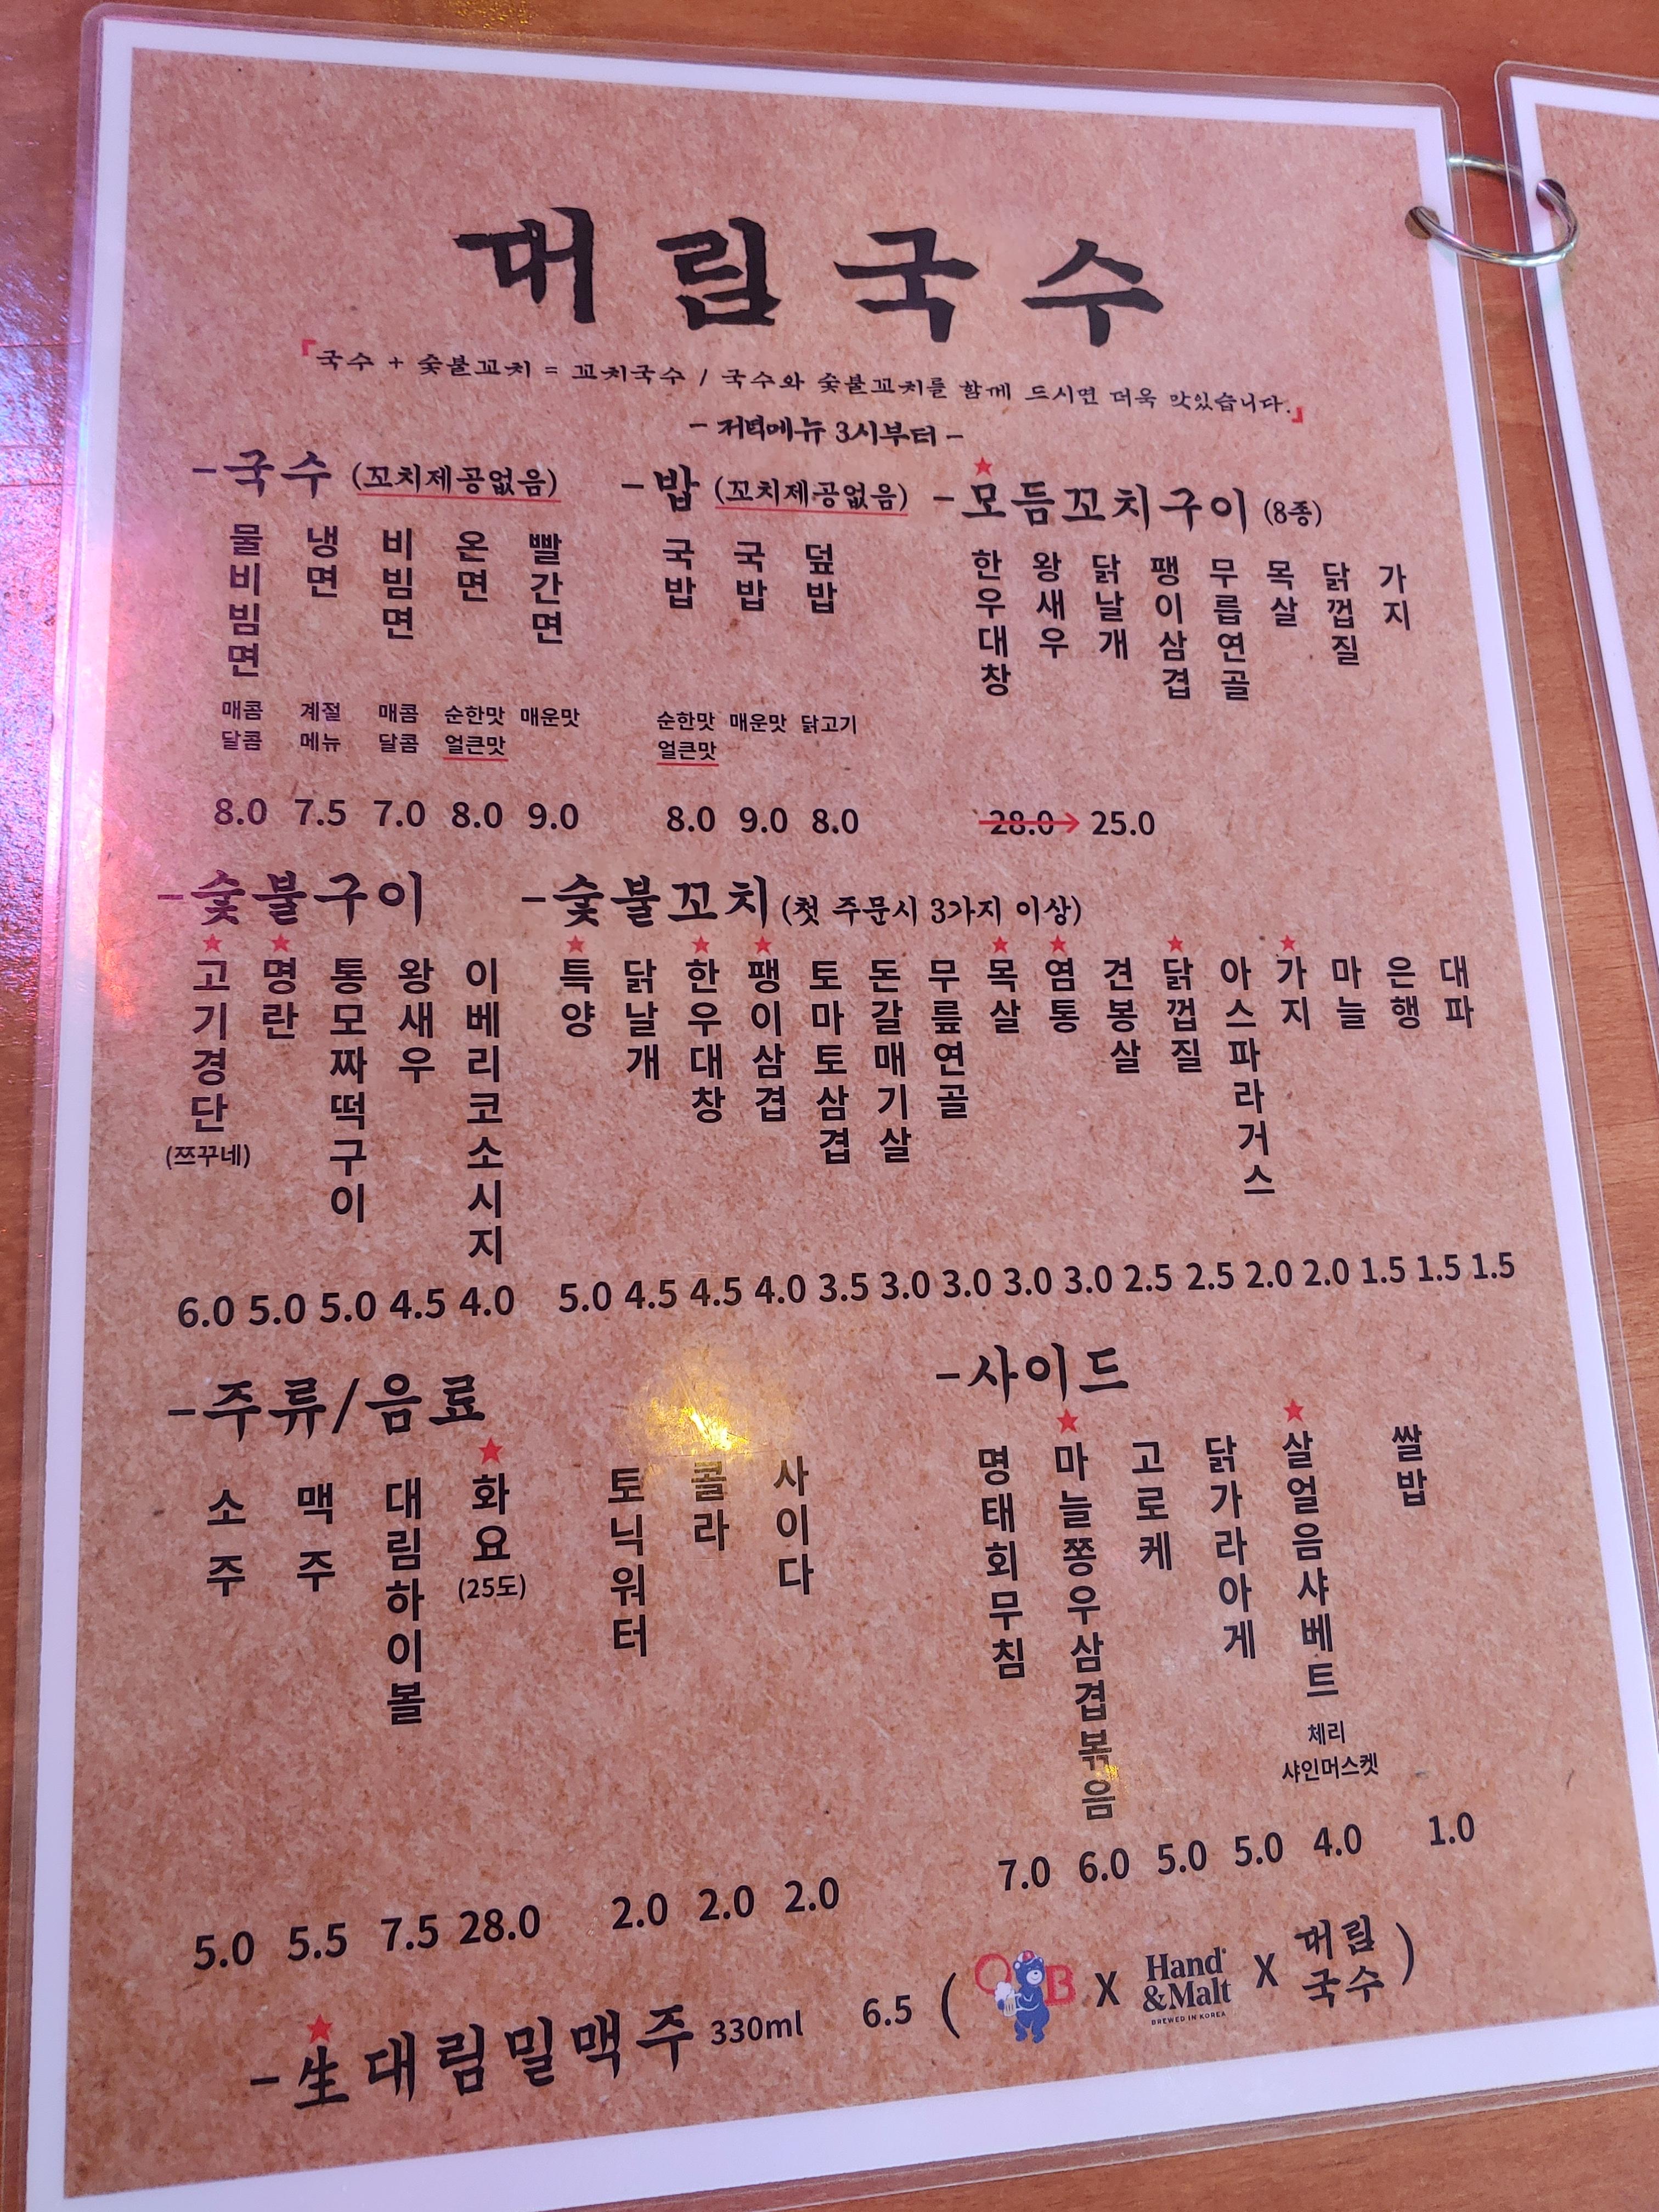 대림국수
「국수 + 숯불꼬치 = 꼬치국수 / 국수와 숯불꼬치를 함께 드시면 더욱 맛있습니다.」
- 저녁메뉴 3시부터 -
-국수 (꼬치제공없음)
물비빔면 냉면 비빔면 온면 빨간면
매콤 계절 매콤 순한맛 매운맛
달콤 메뉴 달콤 얼큰맛
8.0 7.5 7.0 8.0 9.0
-밥 (꼬치제공없음)
국밥 국밥 덮밥
순한맛 매운맛 닭고기
얼큰맛
8.0 9.0 8.0
★
-모듬꼬치구이 (8종)
한우대창 왕새우 닭날개 팽이삼겹 무릅연골 목살 닭껍질 가지
28.0→25.0
-숯불구이
★ ★
고기경단 명란 통모짜떡구이 왕새우 이베리코소시지
(쯔꾸네)
6.0 5.0 5.0 4.5 4.0
-숯불꼬치 (첫 주문시 3가지 이상)
★ ★ ★ ★ ★ ★ ★
특양 닭날개 한우대창 팽이삼겹 토마토삼겹 돈갈매기살 무릎연골 목살 염통 견봉살 닭껍질 아스파라거스 가지 마늘 은행 대파
5.0 4.5 4.5 4.0 3.5 3.0 3.0 3.0 3.0 2.5 2.5 2.0 2.0 1.5 1.5 1.5
-주류/음료
★
소주 맥주 대림하이볼 화요 토닉워터 콜라 사이다
(25도)
5.0 5.5 7.5 28.0 2.0 2.0 2.0
-사이드
★ ★
명태회무침 마늘쫑우삼겹볶음 고로케 닭가라아게 살얼음샤베트 쌀밥
체리
샤인머스켓
7.0 6.0 5.0 5.0 4.0 1.0
★
-生대림밀맥주 330ml 6.5 ( OB X Hand &Malt BREWED IN KOREA X 대림국수 )